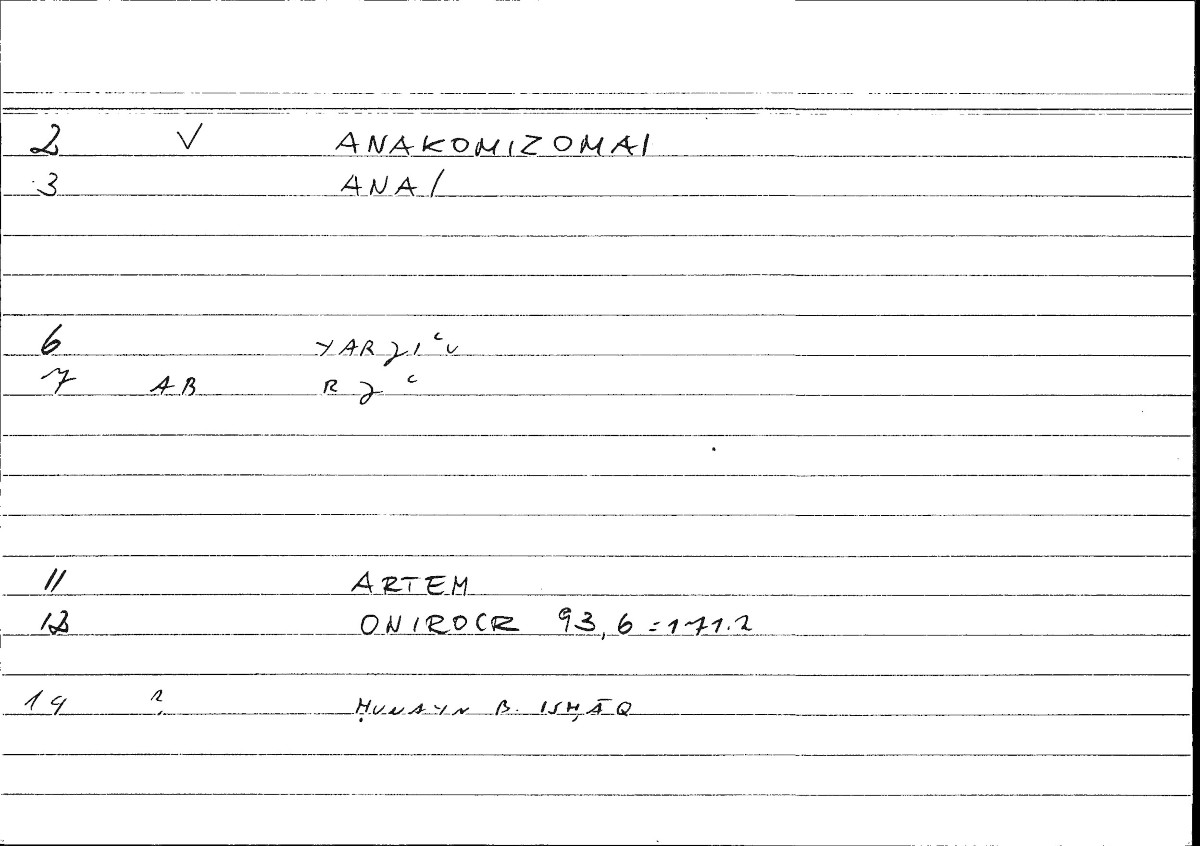 2 V ANAKOMIZOMAI
3 ANA/
6 YARJIʿU
7 AB RJʿ
11 ARTEM
12 ONIROCR 93,6 = 171.2
14 ? ḤUNAYN B. ISḤĀQ